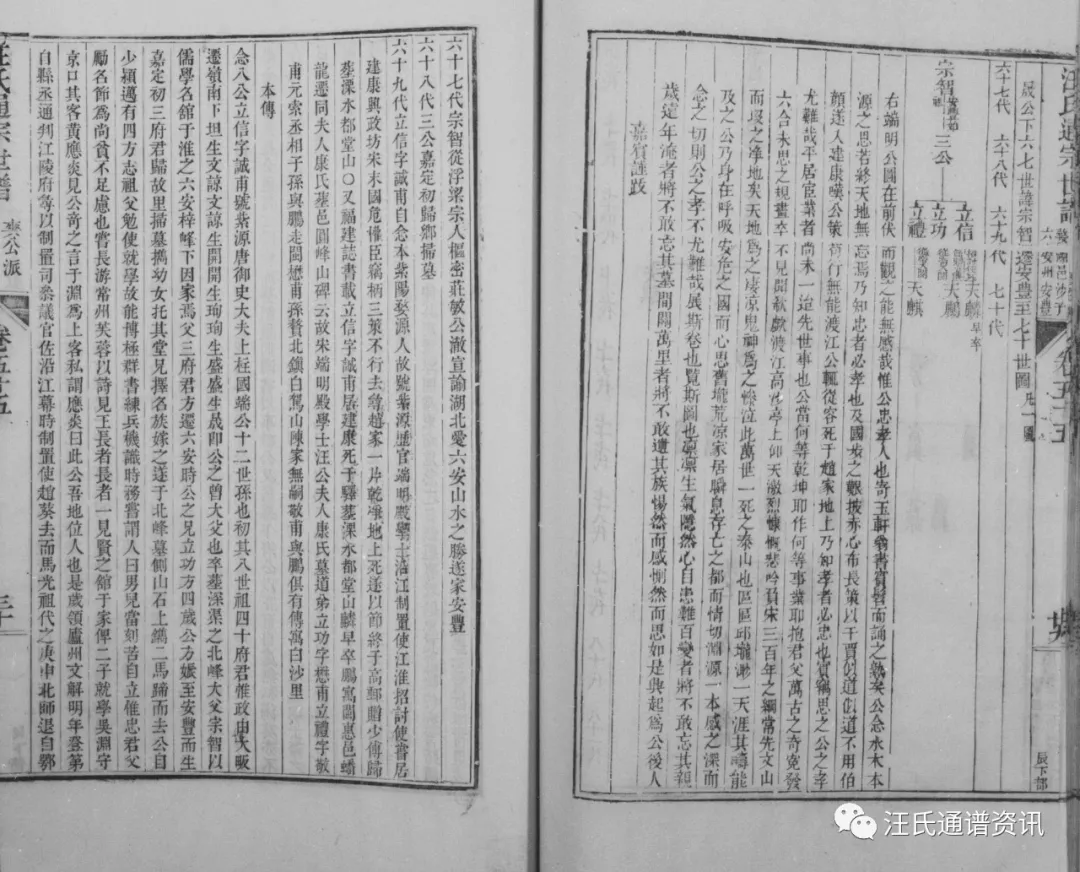 汪氏通宗世譜
卷五十五
晟公下六七世諱宗智遷安豐至七十世圖
六十七代 六十八代 六十九代 七十代
宗智 三公
立信 天麟早卒
天鵬
立功 天麒
立禮 天麒
右端明公圖在前伏而觀之能無感哉惟公忠孝人也寄玉軒翁書實督而誦之孰矣公念水木本
源之思若終天地無忘焉乃知忠者必孝也及國步之艱披赤心布長策以干賈似道似道不用伯
顏遂入建康嘆公策苟行無能渡江公輒從容死于趙家地上乃知孝者必忠也實竊思之公之孝
尤難哉平居宦業者尚未一治先世事也公當何等乾坤耶作何等事業耶抱君父萬古之奇冤發
六合未思之規畫卒不見聞欷歔渡江高沙亭上仰天激烈慷慨悲吟負宋三百年之綱常先文山
而取之淨地矣天地爲之淒凉鬼神爲之慘泣此萬世一死之泰山也區區邱壠渺一天涯其疇能
及之公乃身在呼吸安危之國而心思舊壠荒凉家居瞬息存亡之都而情切淵源一本感之深而
念之切則公之孝不尤難哉展斯卷也覽斯圖也凜凜生氣隱然心自患難百變者將不敢忘其親
歲遠年淹者將不敢忘其墓間關萬里者將不敢遺其族惕然而感惻然而思如是興起爲公後人
嘉賓謹跋
辰下部
六十七代宗智從浮梁宗人樞密莊敏公澈宣諭湖北愛六安山水之勝遂家安豐
六十八代三公嘉定初歸鄉掃墓
六十九代立信字誠甫自念本紫陽婺源人故號紫源歷官端明殿學士沿江制置使江淮招討使嘗居
建康興政坊宋末國危權臣竊柄三策不行去尋趙家一片乾淨地上死遂以節終于高郵贈少傅歸
葬溧水都堂山〇又福建誌書載立信字誠甫居建康死于驛墓溧水都堂山麟早卒鵬寓閩惠邑蟠
龍遷同夫人康氏葬邑圓峰山碑云故宋端明殿學士汪公夫人康氏墓道弟立功字懋甫立禮字敬
甫元索丞相子孫與鵬走閩懋甫孫贅北鎮白鶩山陳家無嗣敬甫與鵬俱有傳寓白沙里
本傳
念八公立信字誠甫號紫源唐御史大夫上柱國端公十二世孫也初其八世祖四十府君惟政由大畈
遷嶺南下坦生文諒文諒生開開生珣珣生盛盛生晟卽公之曾大父也卒葬深渠之北峰大父宗智以
儒學名舘于淮之六安梓峰下因家焉父三府君方還六安時公之兄立功方四歲公方娠至安豐而生
嘉定初三府君歸故里掃墓攜幼女托其堂兄擇名族嫁之遂于北峰墓側山石上鐫二馬歸而去公自
少穎邁有四方志祖父勉使就學故能博極群書練兵機識時務嘗謂人曰男兒當刻苦自立惟忠君父
勵名節爲尚貧不足慮也嘗長游常州芙蓉以詩見王長者長者一見賢之舘于家俾二子就學吳淵守
京口其客黃應炎見公奇之言于淵爲上客私謂應炎曰此公吾地位人也是歲領廬州文解明年登第
自縣丞通判江陵府等以制置司參議官佐沿江幕時制置使趙葵去而馬光祖代之庚申北師退自鄂
汪氏通宗世譜
葵公派
卷五十五
三十
汪氏通谱资讯